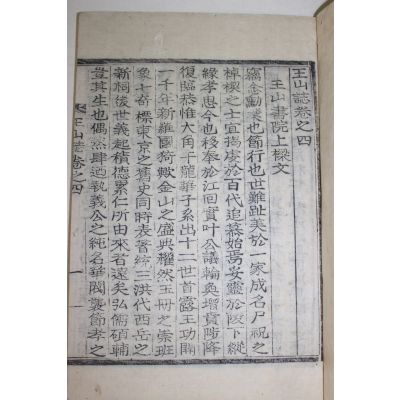 王山誌卷之四
王山書院上樑文
竊念勳業也節行也世難趾美於一家成名尸祝之
棹楔之士宜揭虔於百代追慕始焉妥靈於陂下縱
緣孝思今也移奉於江回實叶公議輪奐增賁陟降
復臨恭惟大角干龍華子系出十二世首露王功閱
一千年新羅國猗歟金山之盛典權然玉冊之崇班
象七奇標東京之舊史同時表著統三洪代西岳之
新祠後世義起積德累仁所由來者遠矣弘儒碩輔
豈其生也偶然肆迺執義公之純名華閥襲節孝之
王山誌卷之四
一